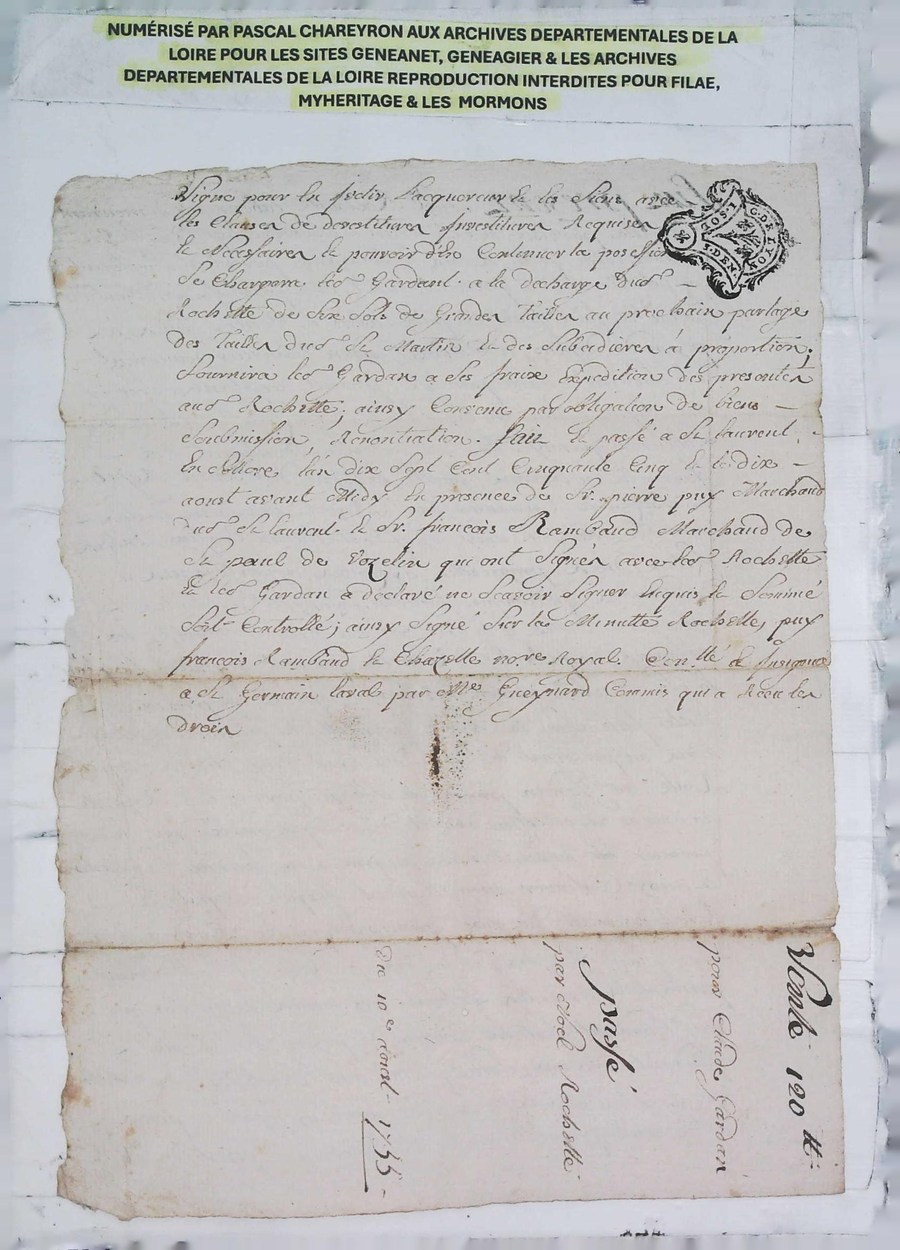 NUMÉRISÉ PAR PASCAL CHAREYRON AUX ARCHIVES DEPARTEMENTALES DE LA
LOIRE POUR LES SITES GENEANET, GENEAGIER & LES ARCHIVES
DEPARTEMENTALES DE LA LOIRE REPRODUCTION INTERDITES POUR FILAE,
MYHERITAGE & LES MORMONS
Vigne pour en Jouir Lacquereur et les Siens avec
les Clauses de devestiture Investiture Requises
et Necessaires le pouvoir d'en Continuer la possession
Se Chargera led Gardant a la decharge dud
Rochette de Six Sols de Grandes tailles au prochain partage
des tailles dud St Martin et des Subcidieres à proportion;
fournira led Gardan a ses fraix Expedition des presentes
aud Rochette; ainsy Convenu par obligation de biens
Soubmission, Renontiation. fait et passé a St laurent
l'an dix Sept Cent Cinquante Cinq et le dix
aoust avant Midy En presence de Sr. pierre puy Marchand
dud St laurent et Sr. françois Rambaud Marchand de
St paul de Vezelin qui ont Signés avec led Rochette
et led Gardan a déclaré ne Scavoir Signer Enquis et Sommé
Soit Controllé; ainsy Signé Sur la Minutte Rochette, puy
françois Rambaud et Chazelle nore Royal. Con.llé et Insinué
a St Germain laval par Me Gueynard Commis qui a Receu les
droits
G. DE LYON
2. SOL
S. DEN
Vente 120 tt
pour Claude Gardan
passé
par Noel Rochette
Du 10e aoust 1755